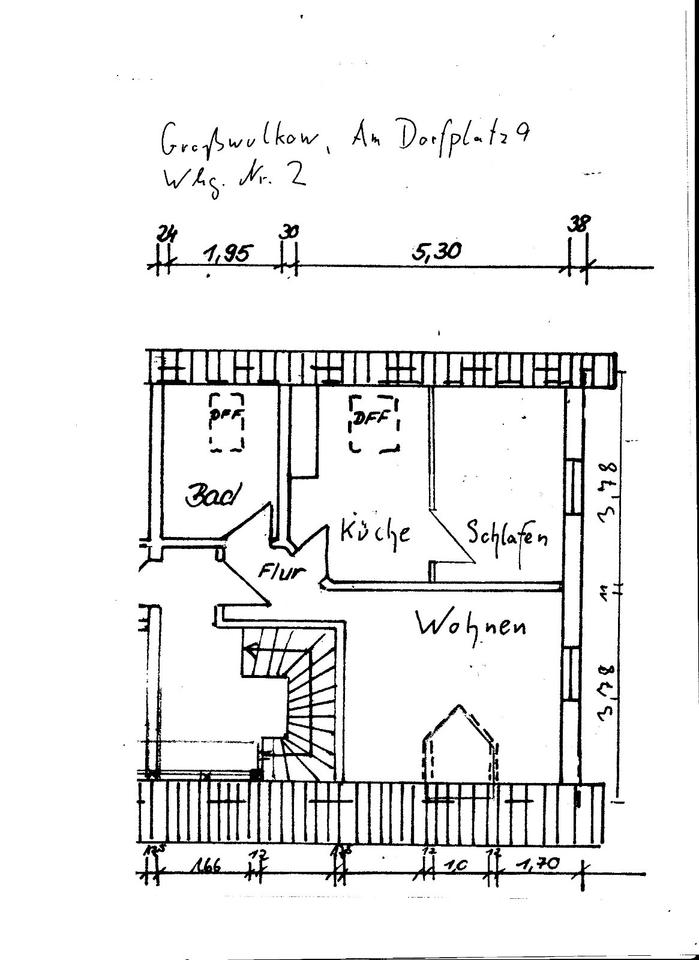 Großwulkow, Am Dorfplatz 9
Whg. Nr. 2
24 1,95 30 5,30 38
DFF DFF
Bad Küche Schlafen
Flur
Wohnen
3,78
11
3,78
12⁵ 1,66 12 12 1,0 12 1,70